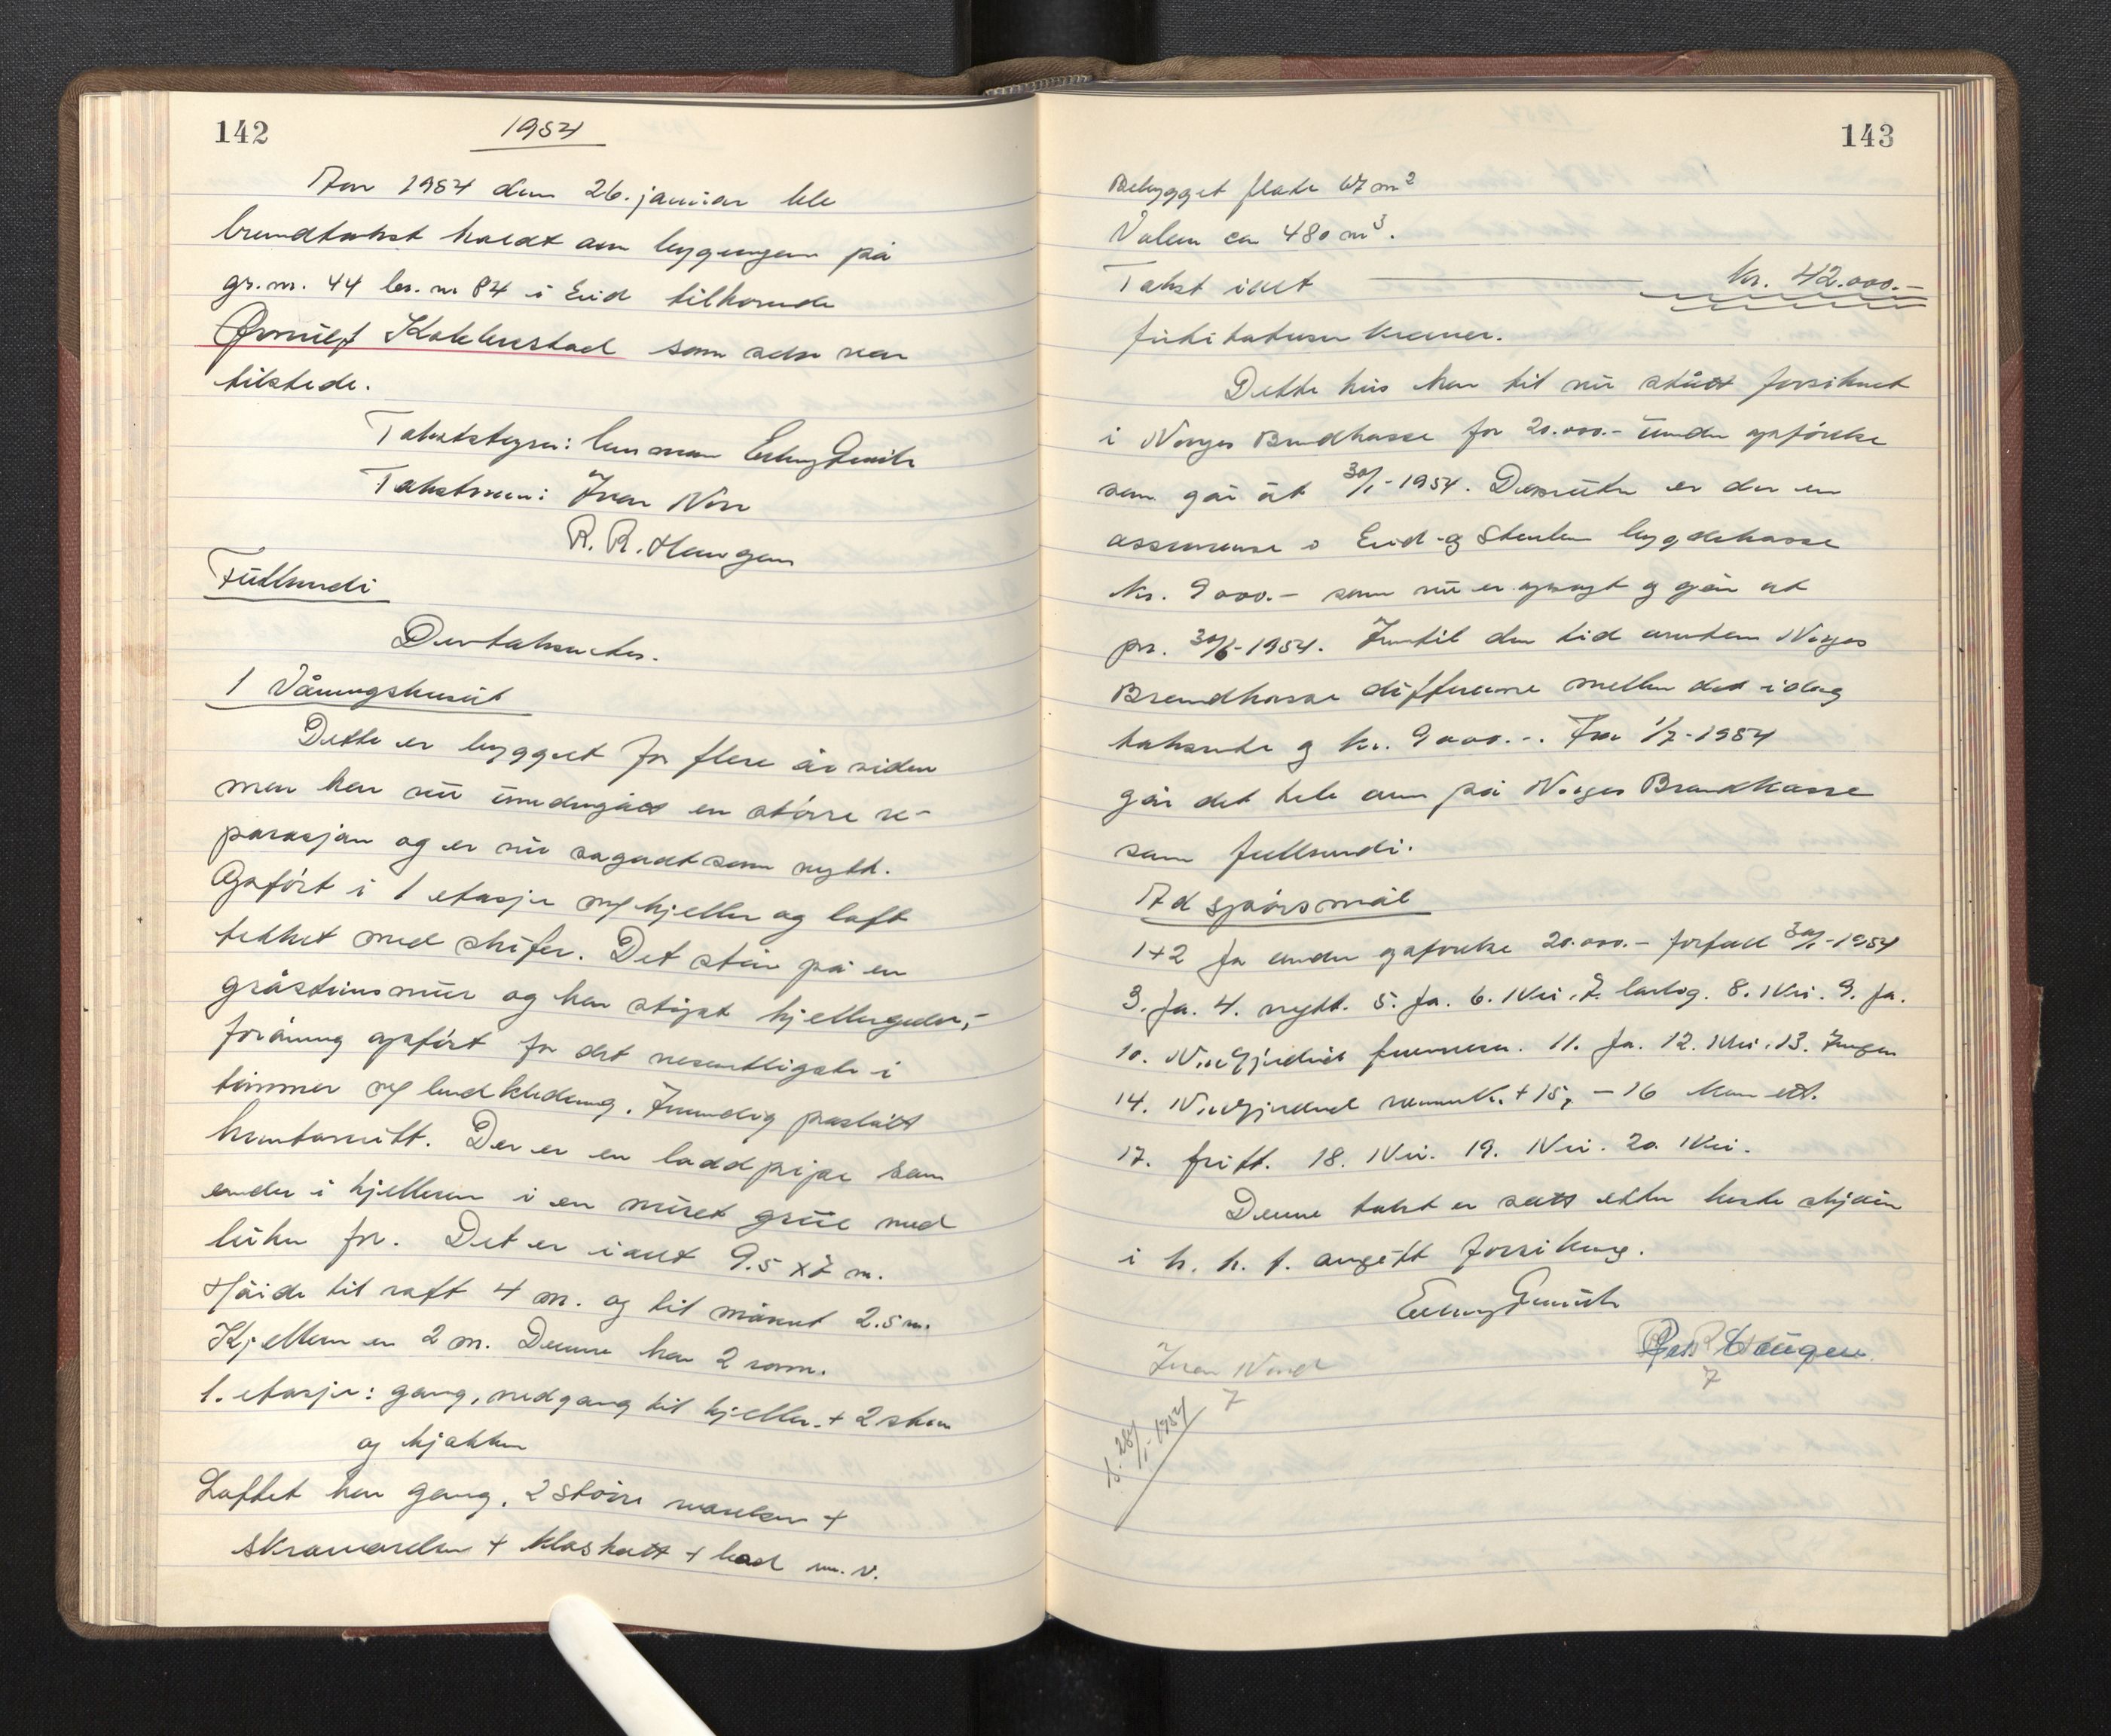 142
1954
Aar 1954 den 26. januar ble
branntakst holdt over bygningen på
gr.nr. 44 br.nr 84 i Eid tilhørende
Ørnulf som selv var
tilstede.
Takststyrer: lensmann Erling
Takstmenn: Ivar Nor
R. R. Haugen
Fullverdi
Der takseres.
1 Våningshuset
Dette er bygget for flere år siden
men har nu undergått en större re-
parasjon og er nu så godt som nytt.
Opfört i 1 etasje m/ kjeller og loft
tekket med skifer. Det står på en
gråsteinsmur og har støpt kjellergulv,-
foröving opfört for det vesentligste i
tömmer m/ bordkledning. Innvendig påslått
huntonitt. Der er en lodd pipe som
ender i kjelleren i en muret grue med
luker for. Det er i alt 9.5 x 7 m.
Höide til raft 4 m. og til mönet 2.5 m.
Kjelleren er 2 m. Denne har 2 rom.
1. etasje: gang, nedgang til kjeller + 2 stuer
og kjøkken
Loftet har gang, 2 störe værelser +
skråværelser + kloskott + bod m.v.
143
Bebygget flate 67 m²
Volum ca 480 m³.
Takst i alt kr. 42.000.-
førti totusen kroner.
Dette hus har til nu stått forsikret
i Norges Brandkasse for 20.000.- under opförelse
som går ut 30/1-1954. Dessuten er der en
assuranse i Eid og bygdekasse
kr. 9000.- som nu er opsagt og går ut
pr. 30/6-1954. Inntil den tid Norges
Brandkasse differanse mellem det idag
takserte og kr. 9000.-. Fra 1/7-1954
går det hele over på Norges Brandkasse
som fullverdi.
Ad spörsmål
1+2 Ja under opförelse 20.000.- forfall 30/1-1954
3. Ja. 4. nytt. 5. Ja. 6. Nei. 7. 8. Nei. 9. Ja.
10. 11. Ja. 12. Nei. 13. Ingen
14. + 15, - 16 Kan ett.
17. fritt. 18. Nei. 19. Nei. 20. Nei.
Denne takst er satt etter beste skjön
i h. h. t. avgitt forsikring.
Erling
R. R. Haugen
7
Ivar Nor
7
28/1-1954